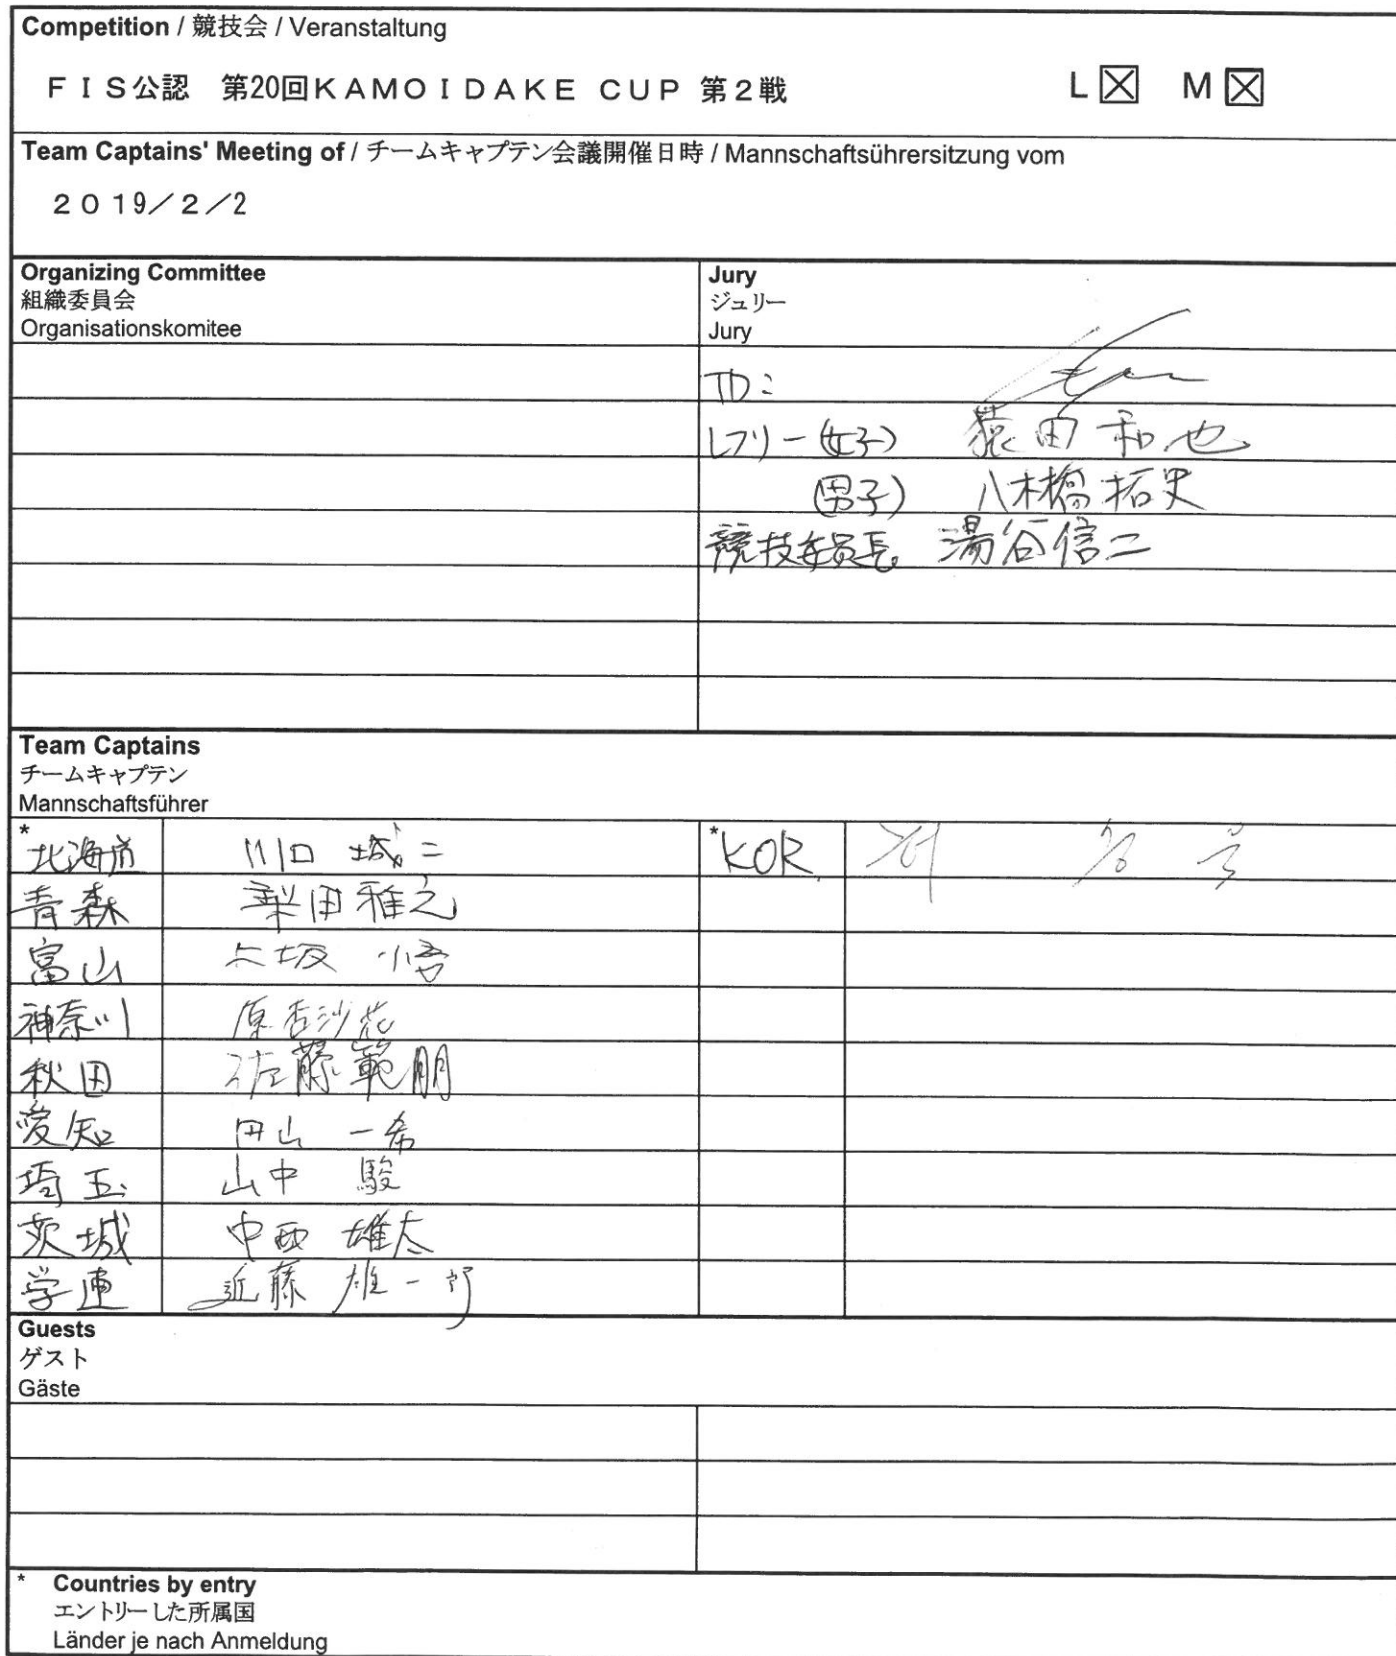 Competition / 競技会 / Veranstaltung
FIS公認 第20回KAMOIDAKE CUP 第2戦 L☒ M☒
Team Captains' Meeting of / チームキャプテン会議開催日時 / Mannschaftsührersitzung vom
2019/2/2
Organizing Committee
組織委員会
Organisationskomitee
Jury
ジュリー
Jury
TD:
レフリー(女子) 猿田和也
(男子) 八木橋拓史
競技委員長 湯谷信二
Team Captains
チームキャプテン
Mannschaftsführer
* 北海道 川口城二
青森 梨田雅之
富山
神奈川 原杏沙花
秋田 佐藤範朋
愛知 一希
埼玉 山中 駿
茨城 中西 雄太
学連 近藤 雄一郎
* KOR 허
Guests
ゲスト
Gäste
* Countries by entry
エントリーした所属国
Länder je nach Anmeldung